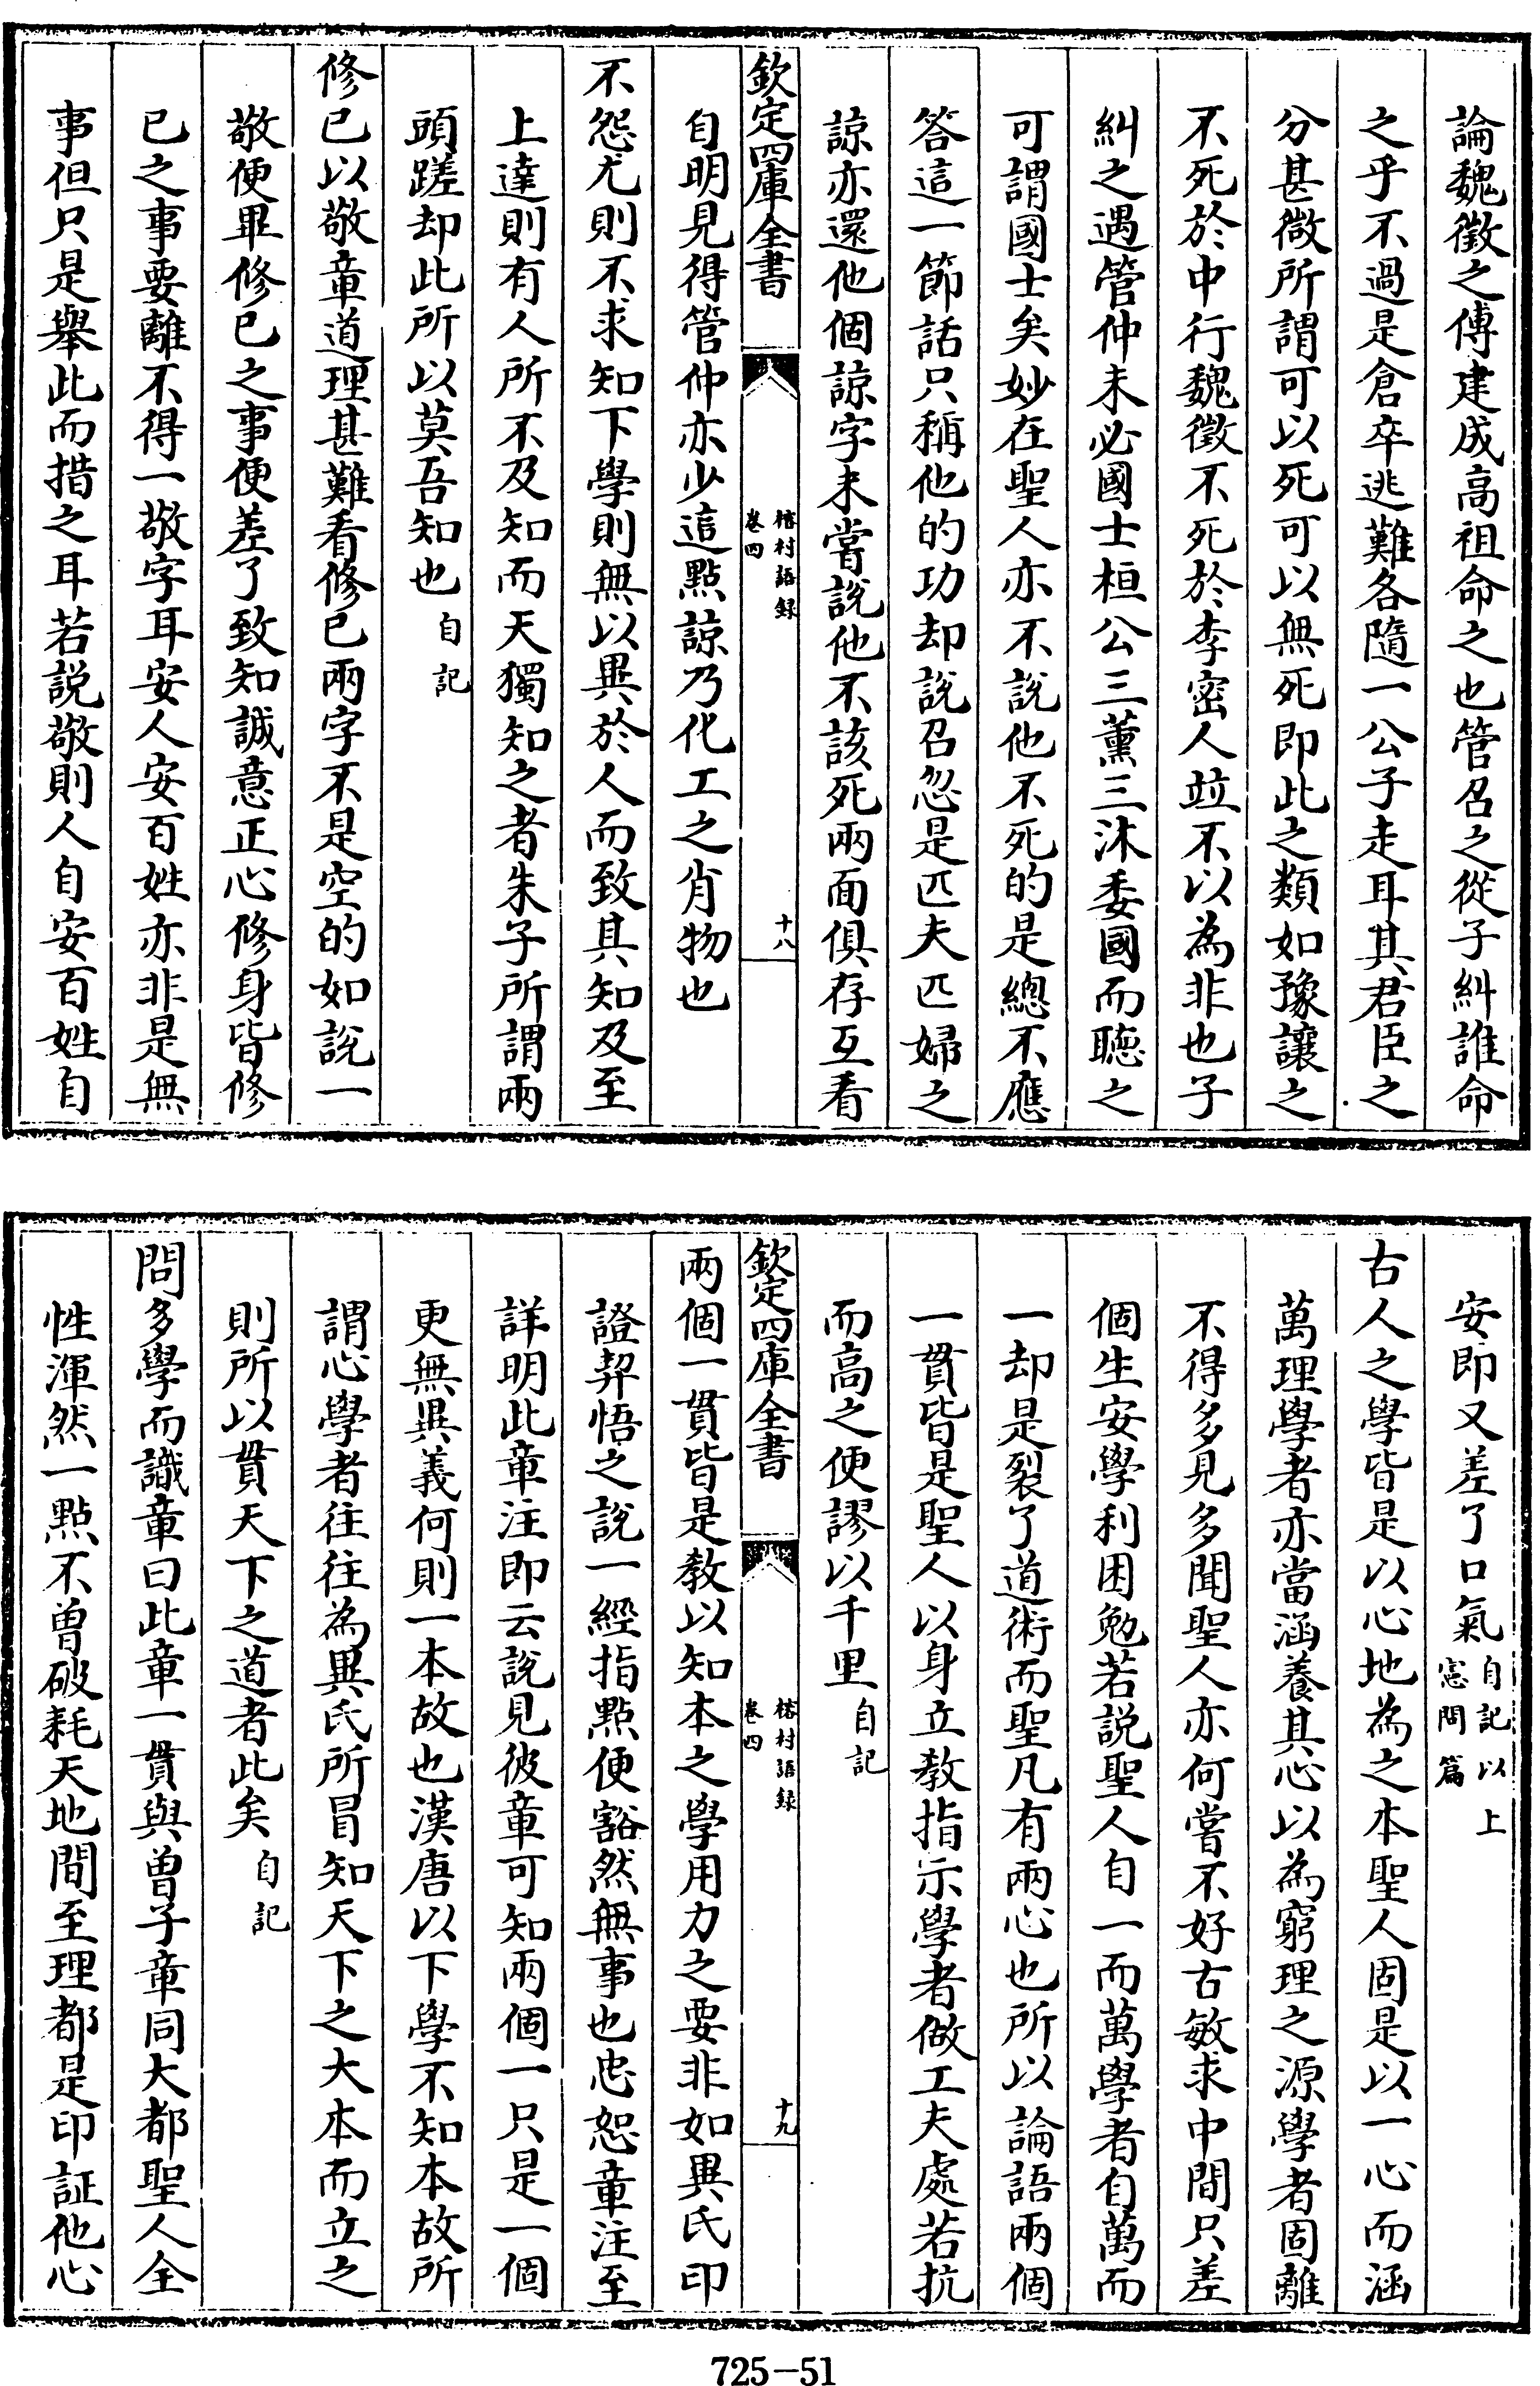 論魏徵之傅建成高祖命之也管召之從子糾誰命
之乎不過是倉卒逃難各隨一公子走耳其君臣之
分甚微所謂可以死可以無死即此之類如豫讓之
不死於中行魏徵不死於李密人竝不以為非也子
糾之遇管仲未必國士桓公三薰三沐委國而聽之
可謂國士矣妙在聖人亦不說他不死的是總不應
答這一節話只稱他的功却說召忽是匹夫匹婦之
諒亦還他個諒字未嘗說他不該死兩面俱存互看
欽定四庫全書
榕村語録
卷四
十八
自明見得管仲亦少這點諒乃化工之肖物也
不怨尤則不求知下學則無以異於人而致其知及至
上達則有人所不及知而天獨知之者朱子所謂兩
頭蹉却此所以莫吾知也自記
修已以敬章道理甚難看修已兩字不是空的如說一
敬便畢修已之事便差了致知誠意正心修身皆修
已之事要離不得一敬字耳安人安百姓亦非是無
事但只是舉此而措之耳若說敬則人自安百姓自
安即又差了口氣自記以上
憲問篇
古人之學皆是以心地為之本聖人固是以一心而涵
萬理學者亦當涵養其心以為窮理之源學者固離
不得多見多聞聖人亦何嘗不好古敏求中間只差
個生安學利困勉若說聖人自一而萬學者自萬而
一却是裂了道術而聖凡有兩心也所以論語兩個
一貫皆是聖人以身立教指示學者做工夫處若抗
而高之便謬以千里自記
欽定四庫全書
榕村語録
卷四
十九
兩個一貫皆是教以知本之學用力之要非如異氏印
證契悟之說一經指點便豁然無事也忠恕章注至
詳明此章注即云說見彼章可知兩個一只是一個
更無異義何則一本故也漢唐以下學不知本故所
謂心學者往往為異氏所冒知天下之大本而立之
則所以貫天下之道者此矣自記
問多學而識章曰此章一貫與曾子章同大都聖人全
性渾然一點不曾破耗天地間至理都是印証他心
725-51